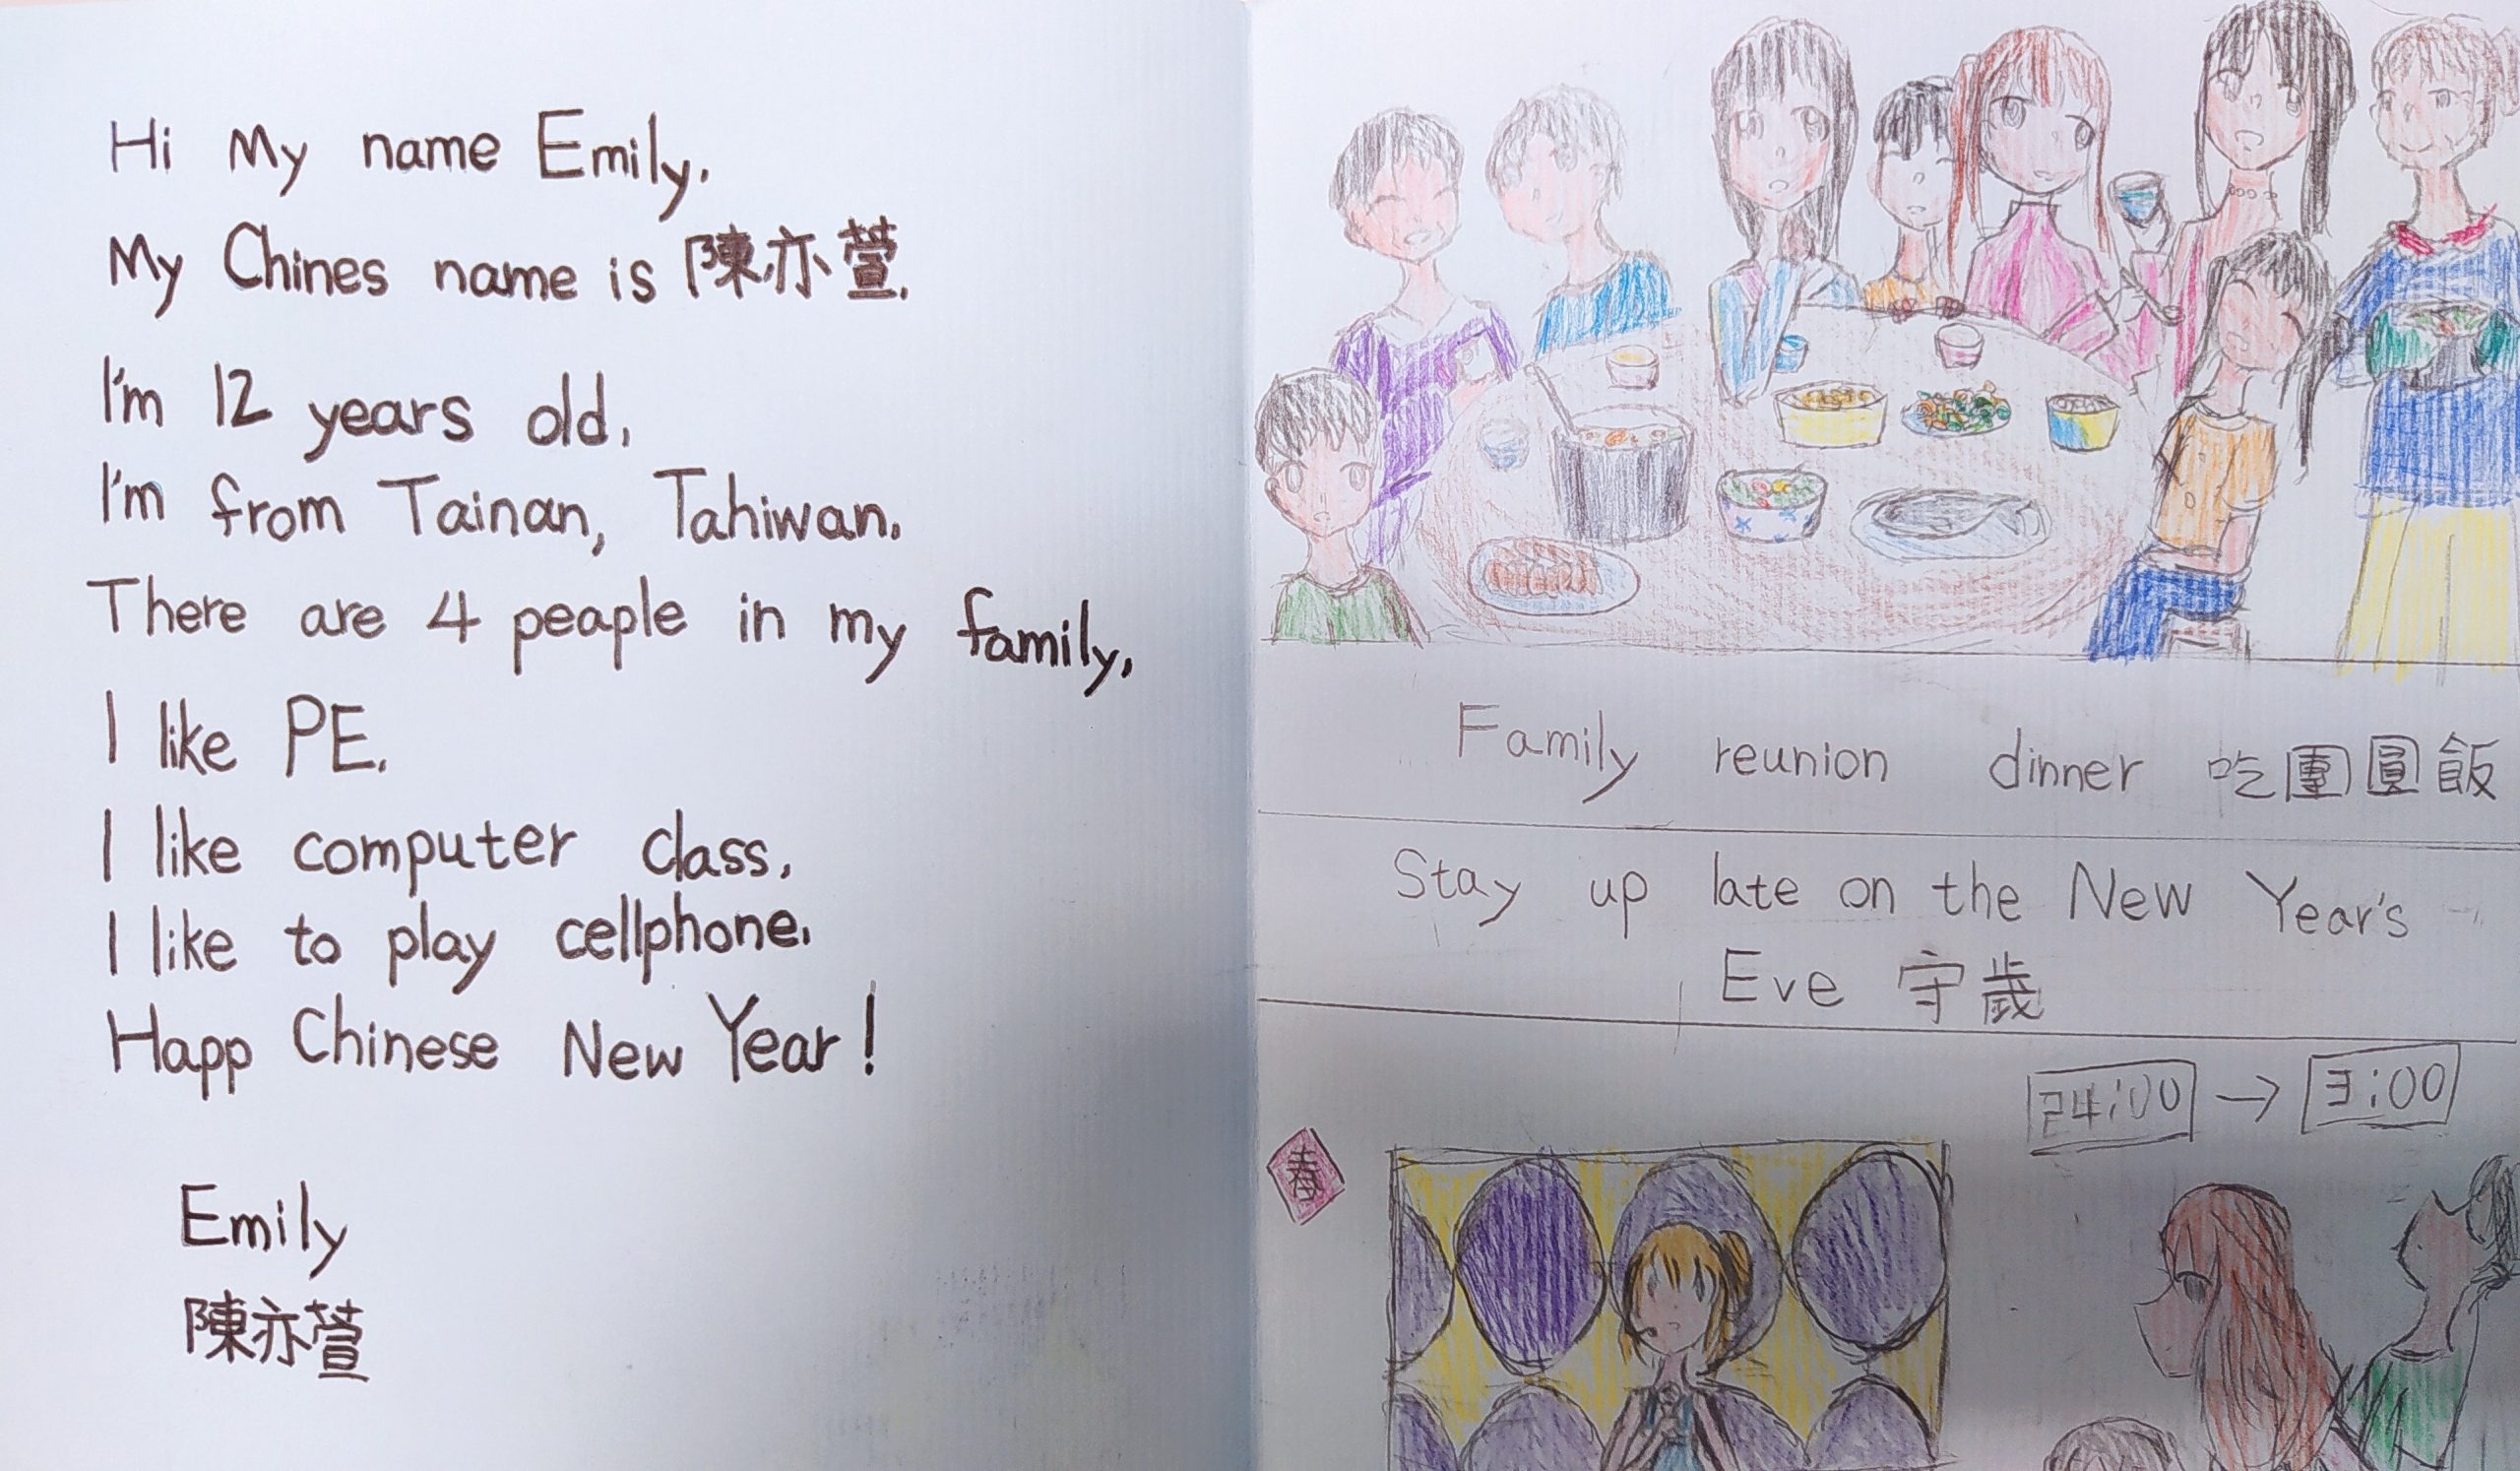 Hi My name Emily.
My Chines name is 陳亦萱.
I'm 12 years old.
I'm from Tainan, Tahiwan.
There are 4 peaple in my family.
I like PE.
I like computer class.
I like to play cellphone.
Happ Chinese New Year!
Emily
陳亦萱
Family reunion dinner 吃團圓飯
Stay up late on the New Year's
Eve 守歲
24:00 → 3:00
春